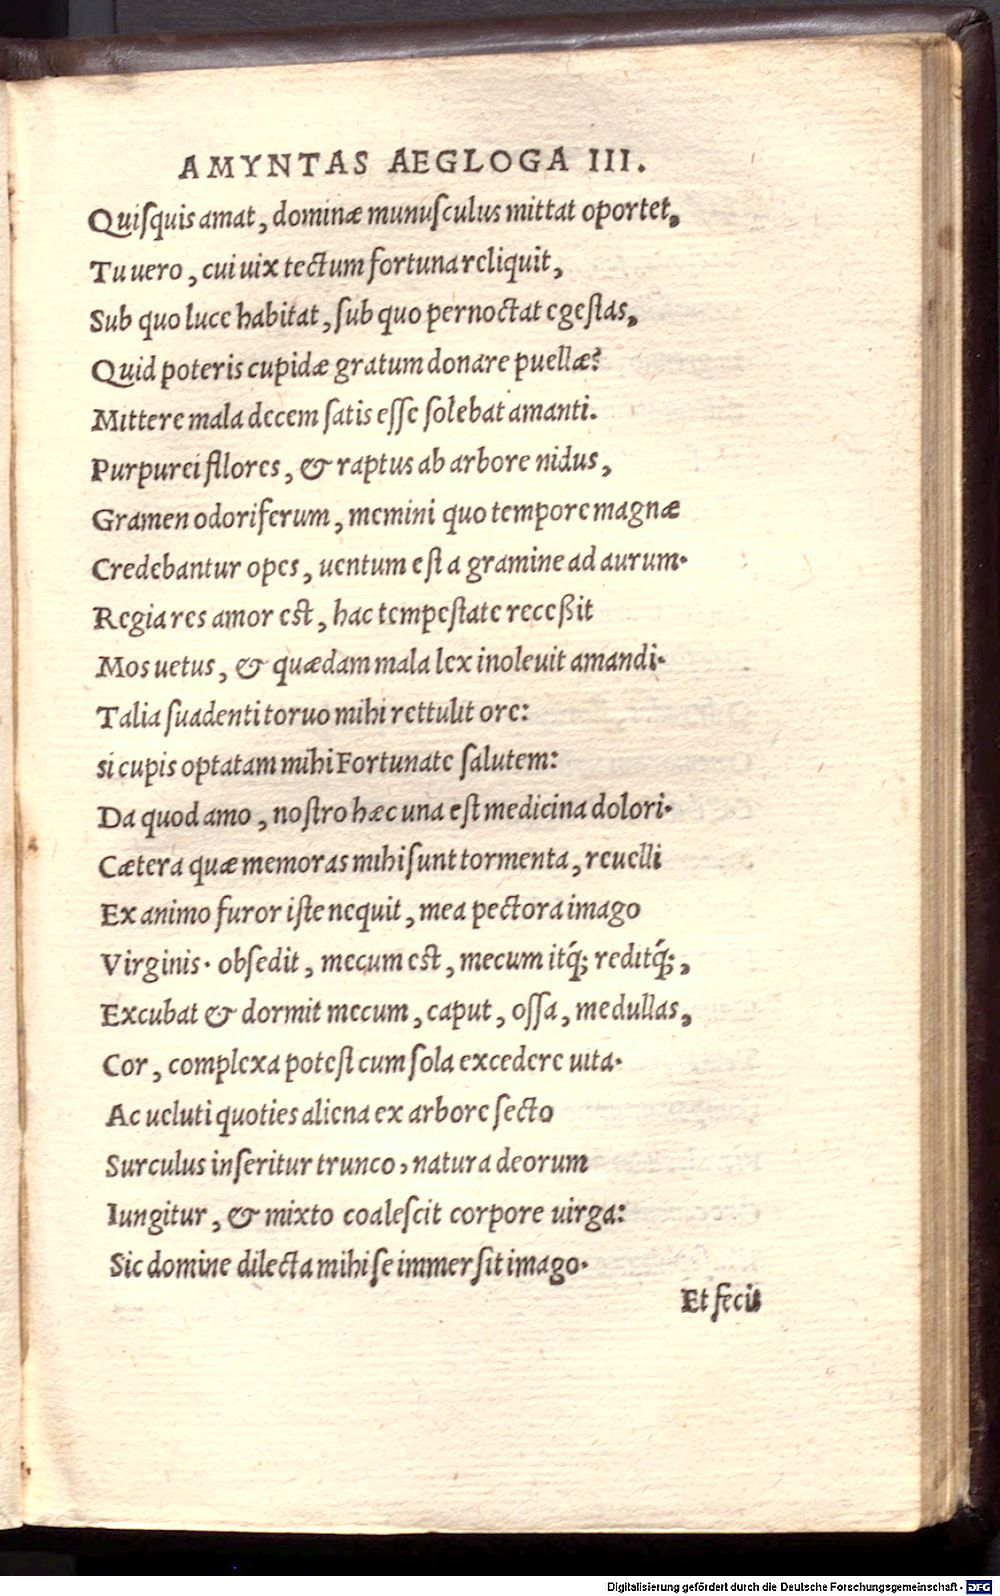 AMYNTAS AEGLOGA III.
Quiſquis amat, dominæ munuſculus mittat oportet,
Tu uero, cui uix tectum fortuna reliquit,
Sub quo luce habitat, ſub quo pernoctat egeſtas,
Quid poteris cupidæ gratum donare puellæ?
Mittere mala decem ſatis eſſe ſolebat amanti.
Purpurei fllores, & raptus ab arbore nidus,
Gramen odoriferum, memini quo tempore magnæ
Credebantur opes, uentum eſt a gramine ad aurum.
Regia res amor eſt, hac tempeſtate receßit
Mos uetus, & quædam mala lex inoleuit amandi.
Talia ſuadenti toruo mihi rettulit ore:
si cupis optatam mihi Fortunate ſalutem:
Da quod amo, noſtro hæc una eſt medicina dolori.
Cætera quæ memoras mihi ſunt tormenta, reuelli
Ex animo furor iſte nequit, mea pectora imago
Virginis. obſedit, mecum eſt, mecum itq́; reditq́;,
Excubat & dormit mecum, caput, oſſa, medullas,
Cor, complexa poteſt cum ſola excedere uita.
Ac ueluti quoties aliena ex arbore ſecto
Surculus inſeritur trunco, natura deorum
Iungitur, & mixto coaleſcit corpore uirga:
Sic domine dilecta mihi ſe immerſit imago.
Et fecit
Digitalisierung gefördert durch die Deutsche Forschungsgemeinschaft - DFG